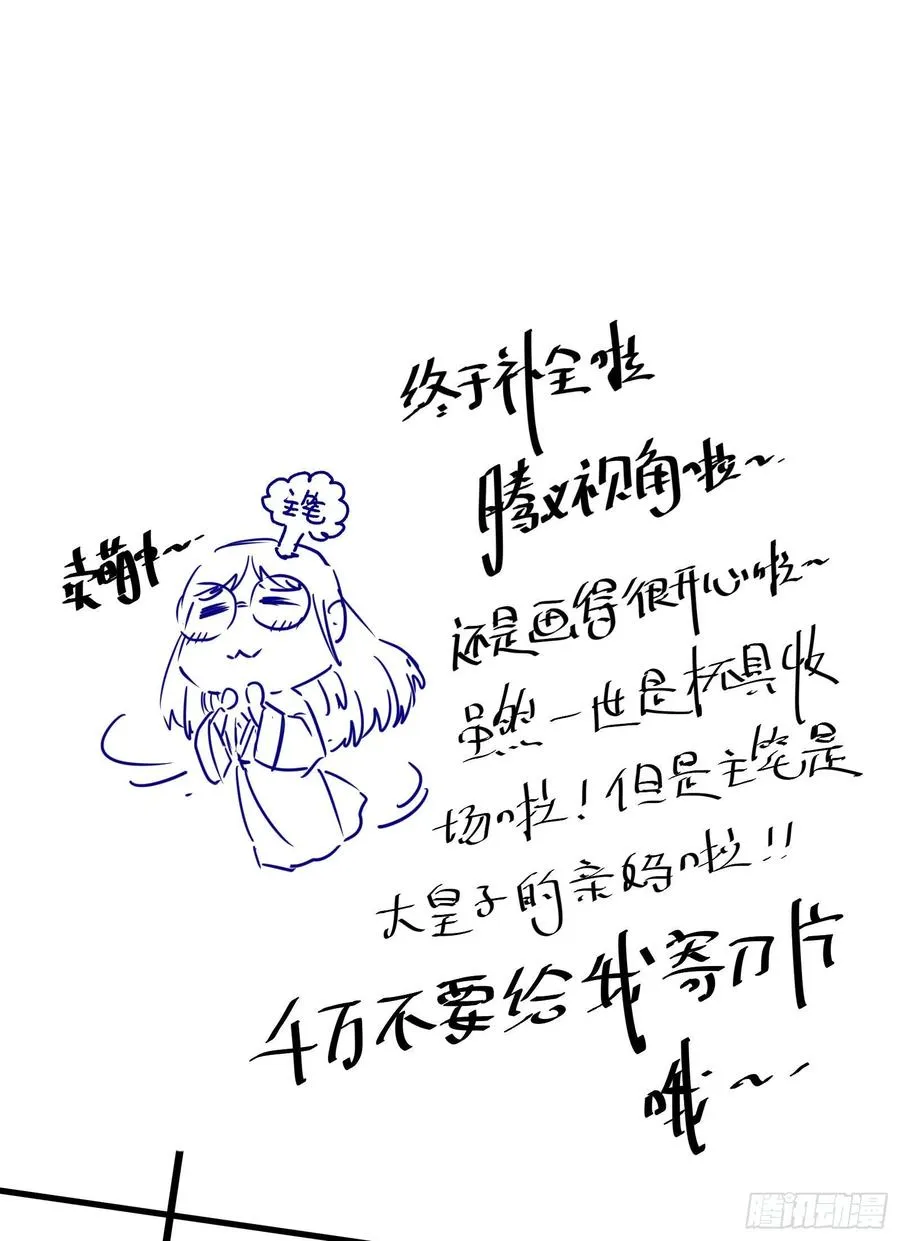 终于补全啦
腾义视角啦~
主笔
卖萌中~
还是画得很开心啦~
虽然一世是杯具收
场啦！但是主笔是
大皇子的亲妈啦！！
千万不要给我寄刀片
哦~
腾讯动漫